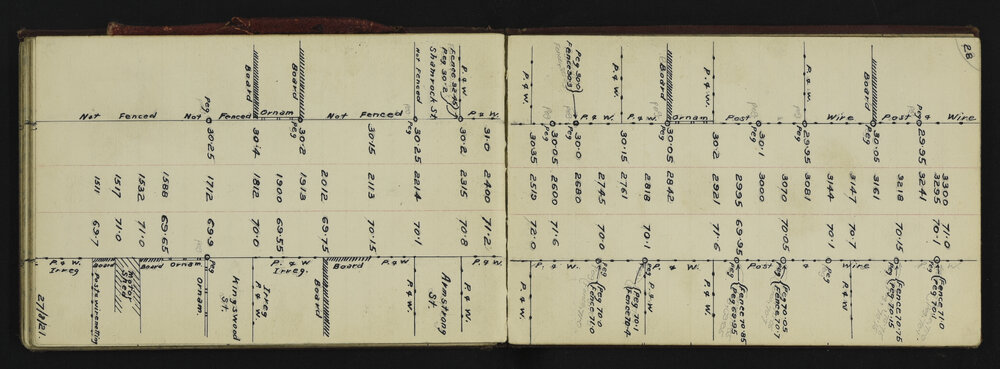 28
3300 71·0
Peg 29·95 3295 70·1 Fence 71·0
Peg 70·1
3241
Post &
3218 70·15 Fence 70·75
Peg 70·15
30·05 3161
Board
3147 70·7
Wire
3144 70·1 Peg
P. & W. 29·95 3081
3070 70·05 Peg 70·05
Fence 70·7
30·1 3000
Post
2995 69·95 Fence 70·85
Peg 69·95
P. & W. 30·2 2921 71·6
Ornam
Board 30·05 2842
2818 70·1 Peg Peg 70·1
Fence 70·4
P. & W.
P. & W. 30·15 2761
2745 70·0 Peg 70·0
Fence 71·0
Peg 30·0
Fence 30·3 30·0 2680
30·05 2600 71·6
P. & W. 30·35 2519 72·0
P. & W. 31·0 2400 71·2 P. & W.
Fence 32·45
Peg 30·2 30·2 2315 70·8 P. & W.
Shamrock St. Armstrong St.
Not Fenced Peg 30·25 2214 70·1 P. & W.
Not Fenced 30·15 2113 70·15
2012 69·75 Board
Board Peg 30·2 1913
1900 69·55 Irreg
Ornam
Board 30·4 1812 70·0 P. & W.
Fenced
Kingswood St.
Peg 30·25 1712 69·9 Peg Ornam
Not Fenced
1588 69·65
1532 71·0 Board
1517 71·0 Motor Shed
1511 69·7 Board
P. & W. Irreg
27/9/21.